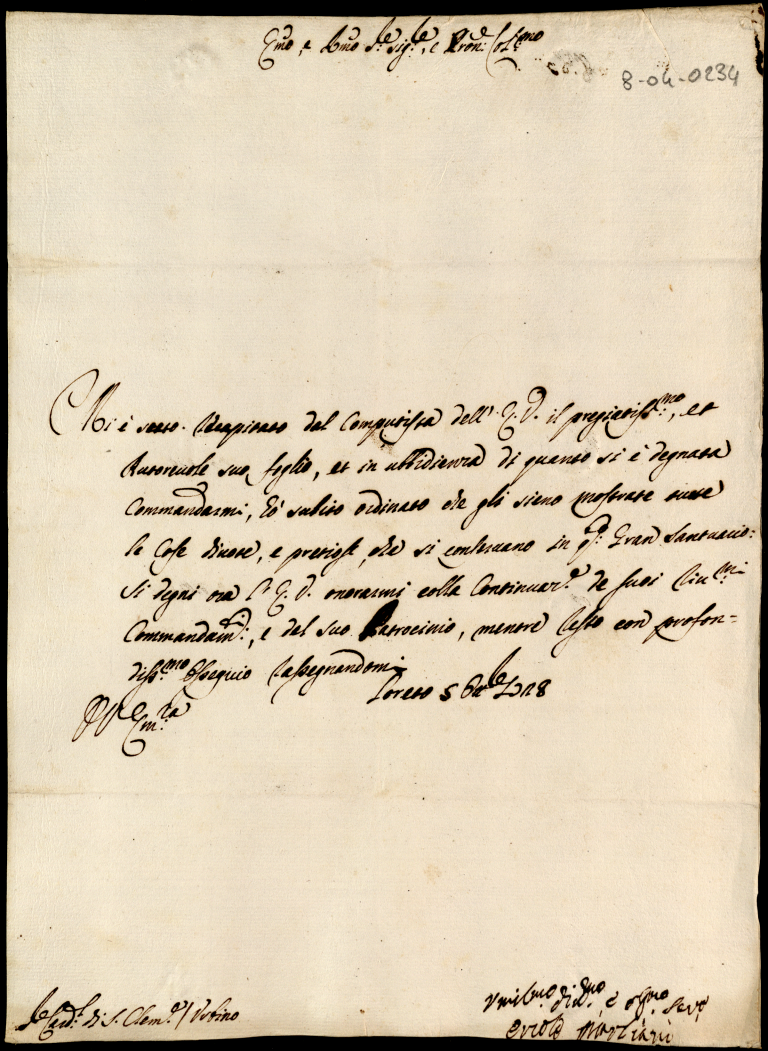 Emo, e Rmo Sre Sigre, e Pron: Colmo
8-04-0234
Mi è stato recapitato dal Computista dell' E. V. il pregiatissmo, et
Autorevole suo foglio, et in ubbidienza di quanto si è degnata
Commandarmi, hò subito ordinato che gli sieno mostrate tutte
le Cose divote, e pretiose, che si conservano in qto Gran Santuario:
Si degni ora l' E. V. onorarmi colla Continuare de suoi riumi
Commandamti, e del suo Patrocinio, mentre resto con profon=
dissmo Ossequio rassegnandomi
Loreto 5 1728
Emza
Card: di S. Clemte / Urbino
Umilmo Divmo, e Obmo Serve